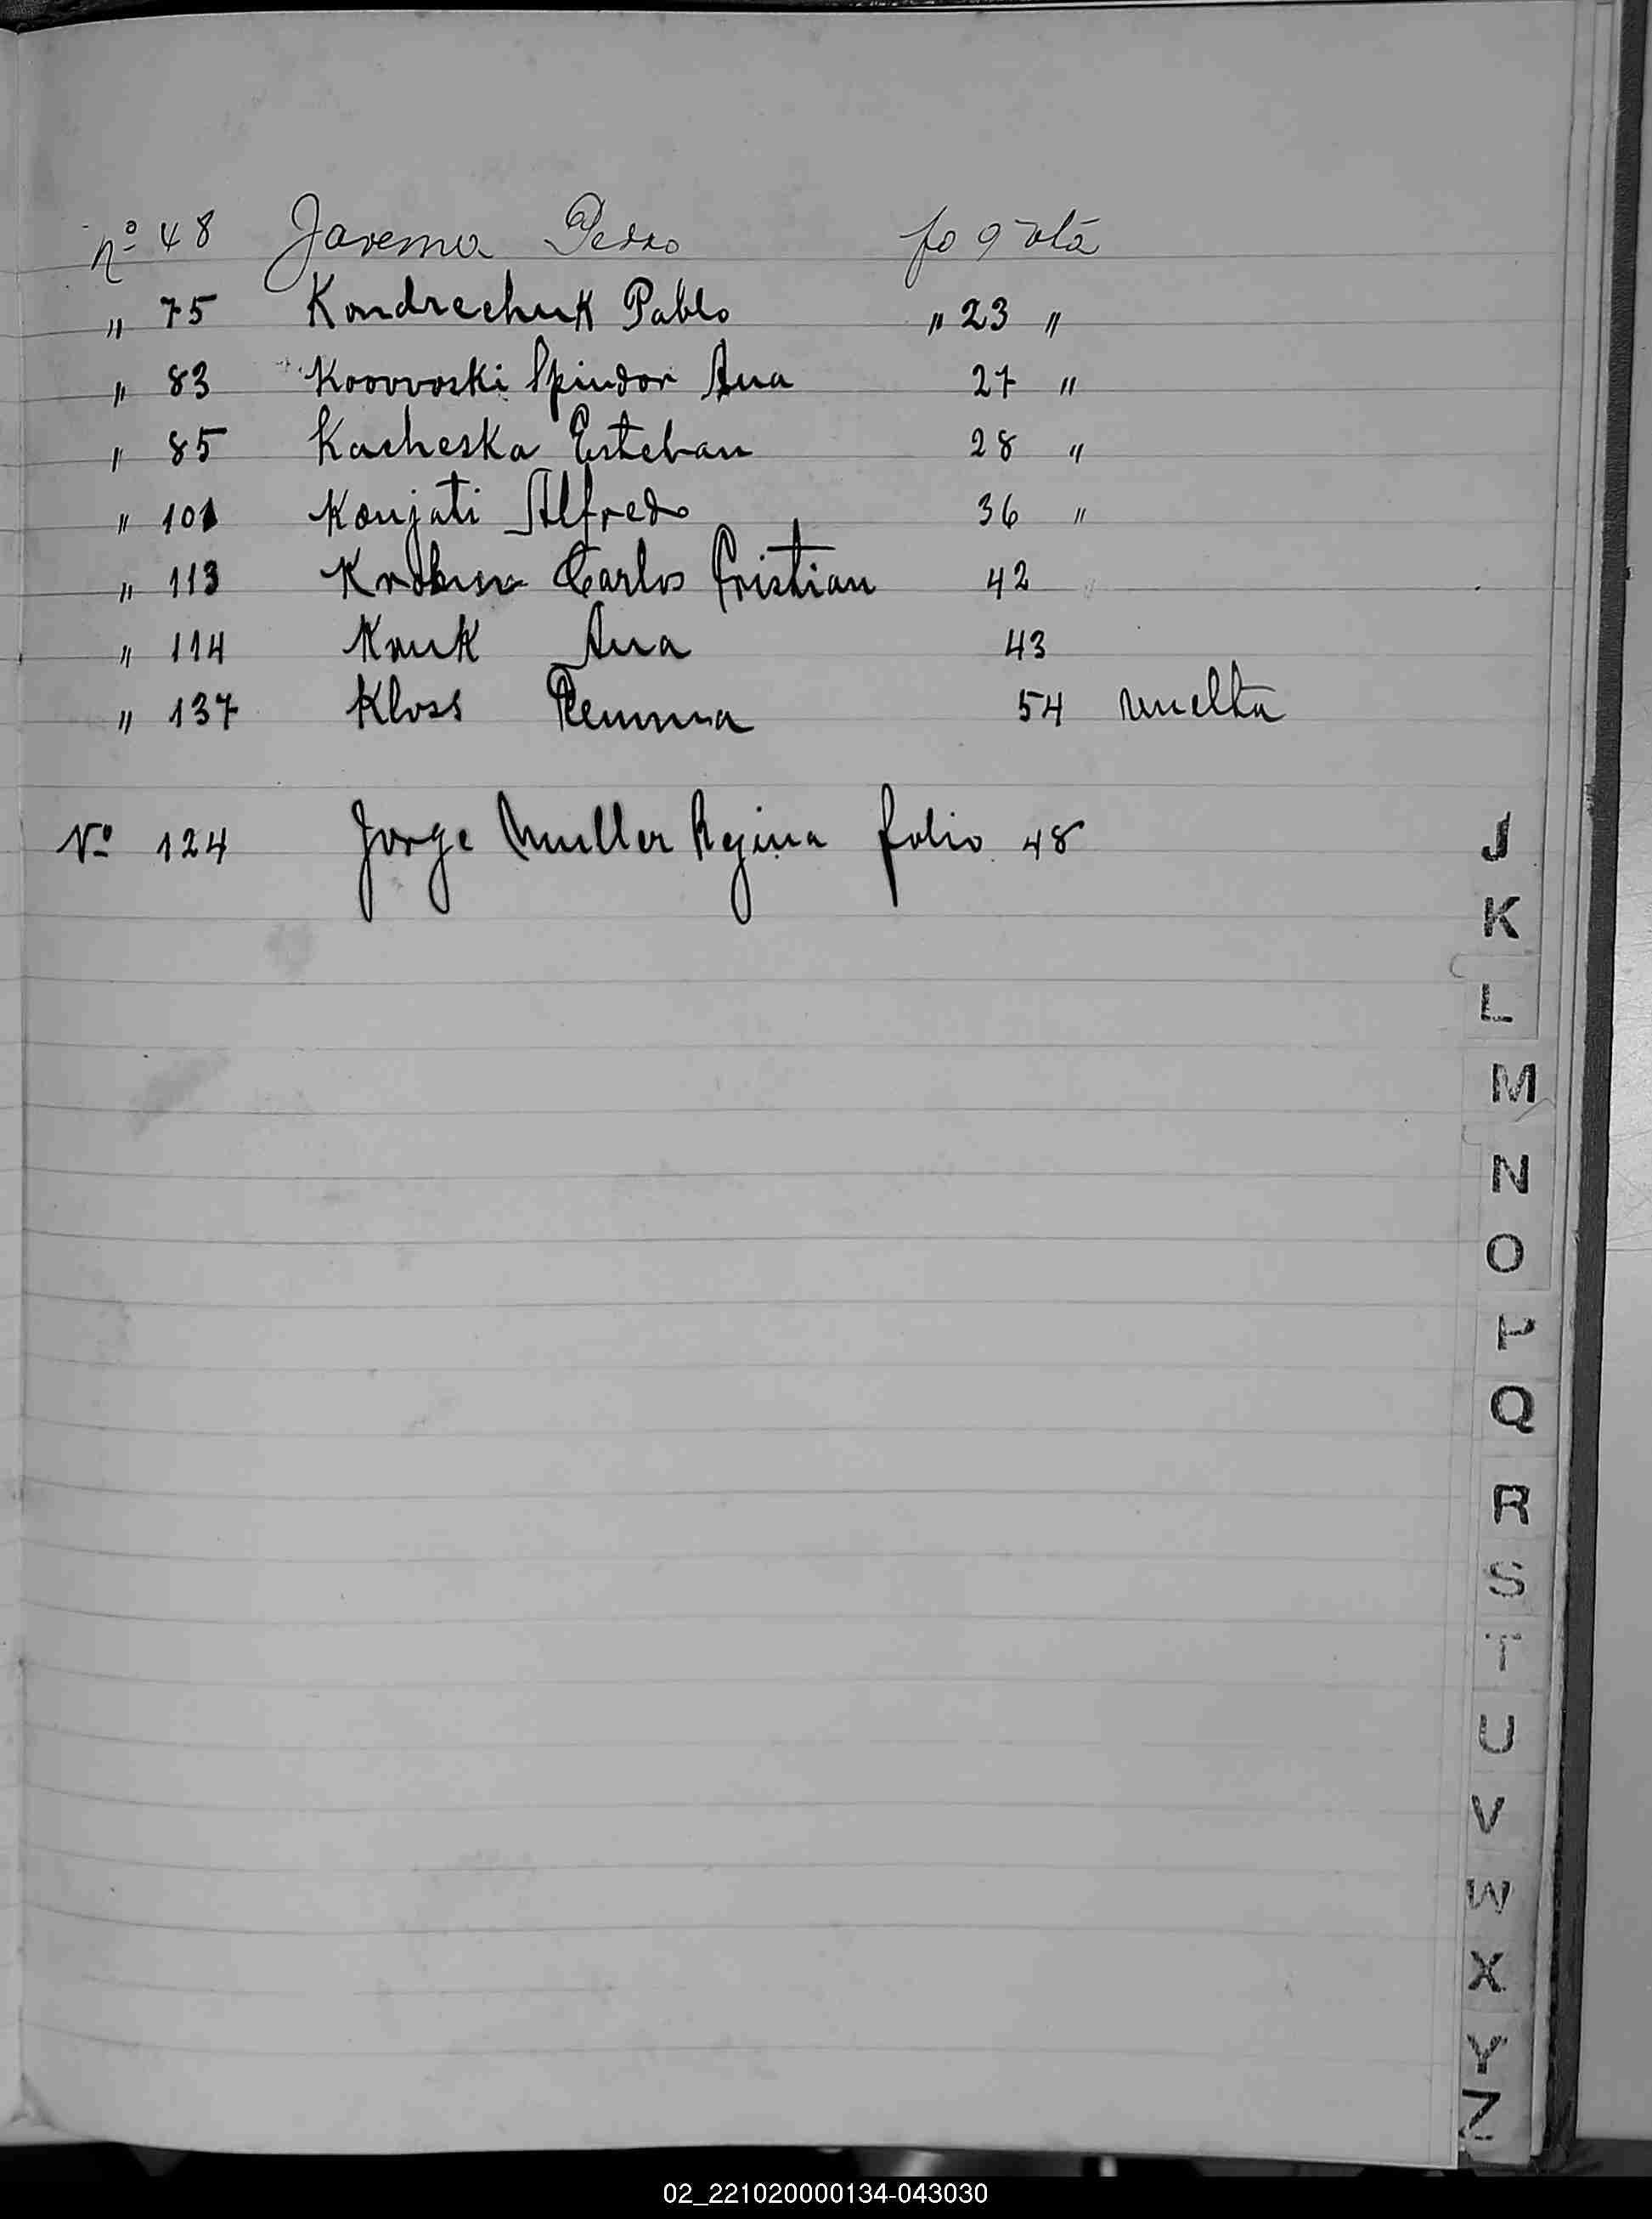 nº 48 Jarema Pedro fo 9 vlta
" 75 Kondrechuk Pablo " 23 "
" 83 Koovvoski Spindor Ana 27 "
" 85 Kacheska Esteban 28 "
" 101 Konjati Alfredo 36 "
" 113 Carlos Cristian 42
" 114 Kouk Ana 43
" 137 Kloss 54 vuelta
Nº 124 Jorge Muller Regina folio 48
J
K
L
M
N
O
P
Q
R
S
T
U
V
W
X
Y
Z
02_221020000134-043030